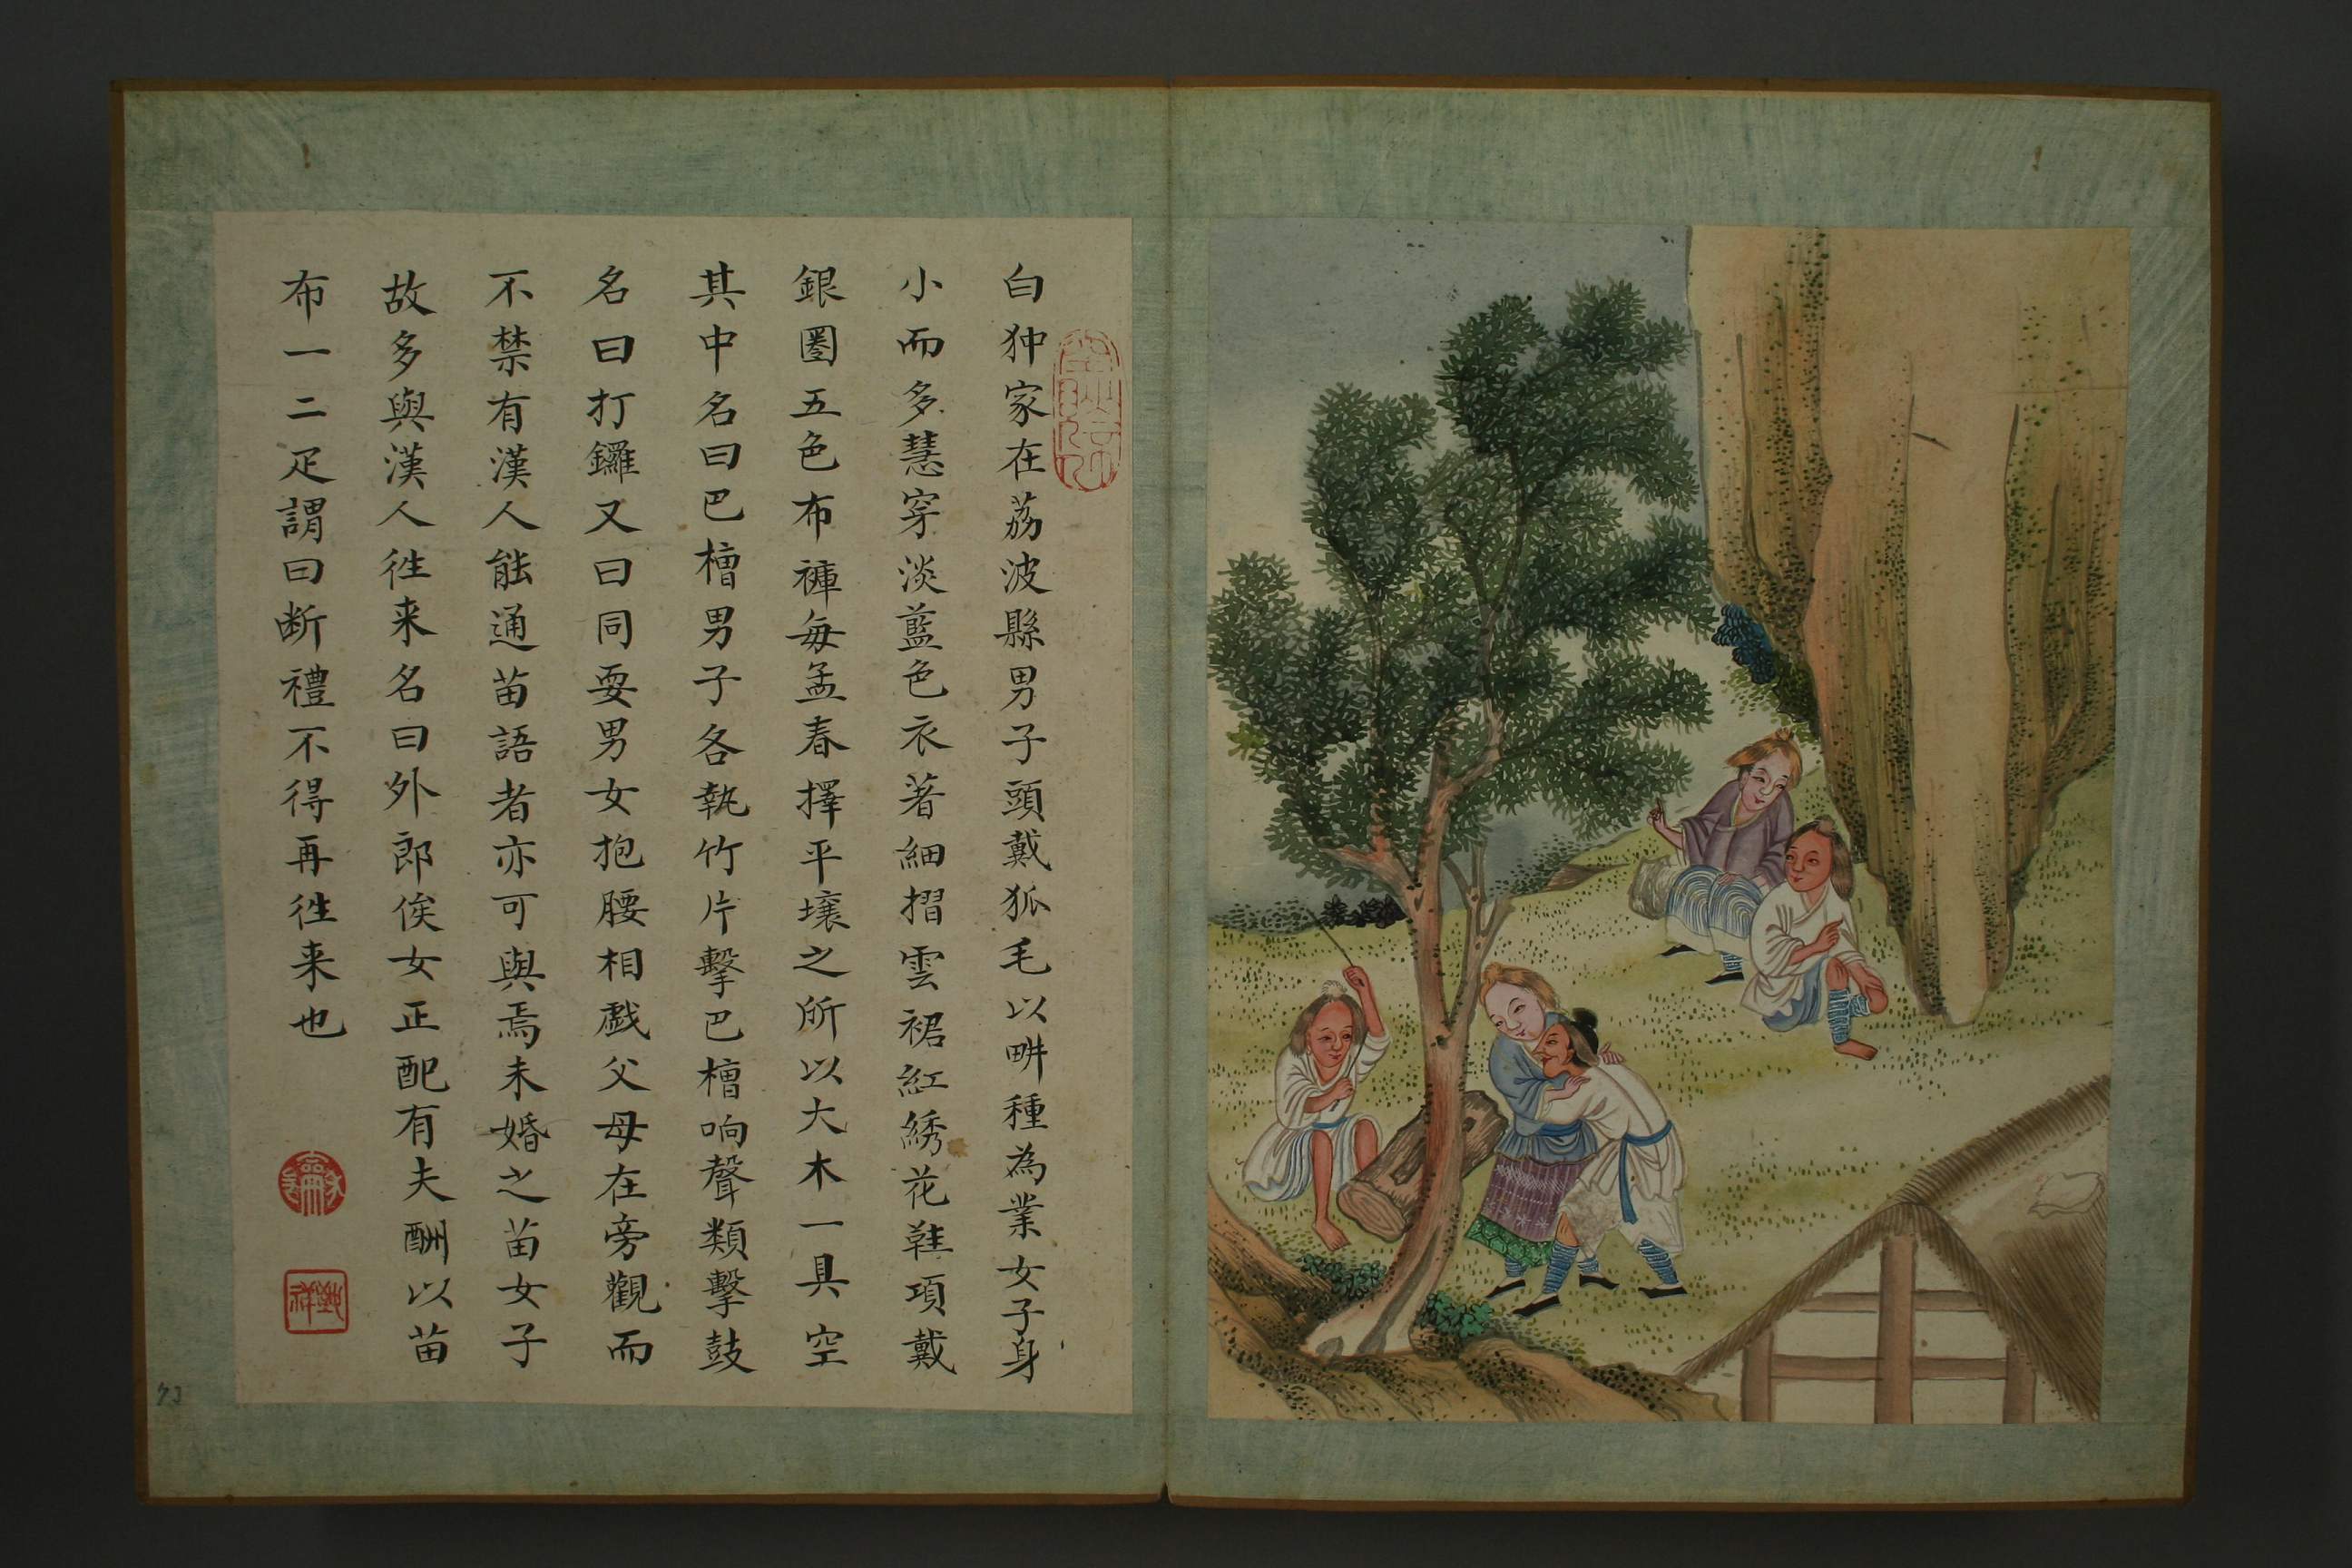 白狆家在荔波縣男子頭戴狐毛以畊種為業女子身
小而多慧穿淡藍色衣著細摺雲裙紅綉花鞋項戴
銀圈五色布褲每孟春擇平壤之所以大木一具空
其中名曰巴槽男子各執竹片擊巴槽响聲類擊鼓
名曰打鑼又曰同耍男女抱腰相戯父母在旁觀而
不禁有漢人能通苗語者亦可與焉未婚之苗女子
故多與漢人徃来名曰外郎俟女正配有夫酬以苗
布一二疋謂曰断禮不得再徃来也